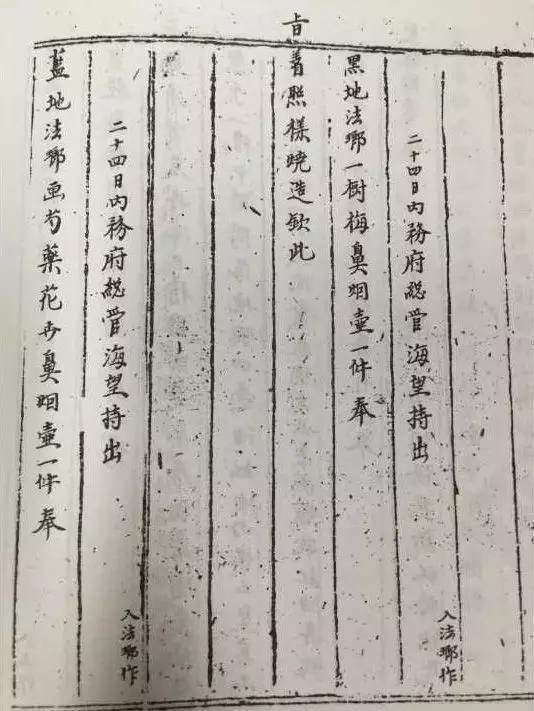 二十四日內務府總管海望持出
入法瑯作
黑地法瑯一樹梅鼻烟壺一件奉
旨着照樣燒造欽此
二十四日內務府總管海望持出
入法瑯作
藍地法瑯画芍藥花卉鼻烟壺一件奉